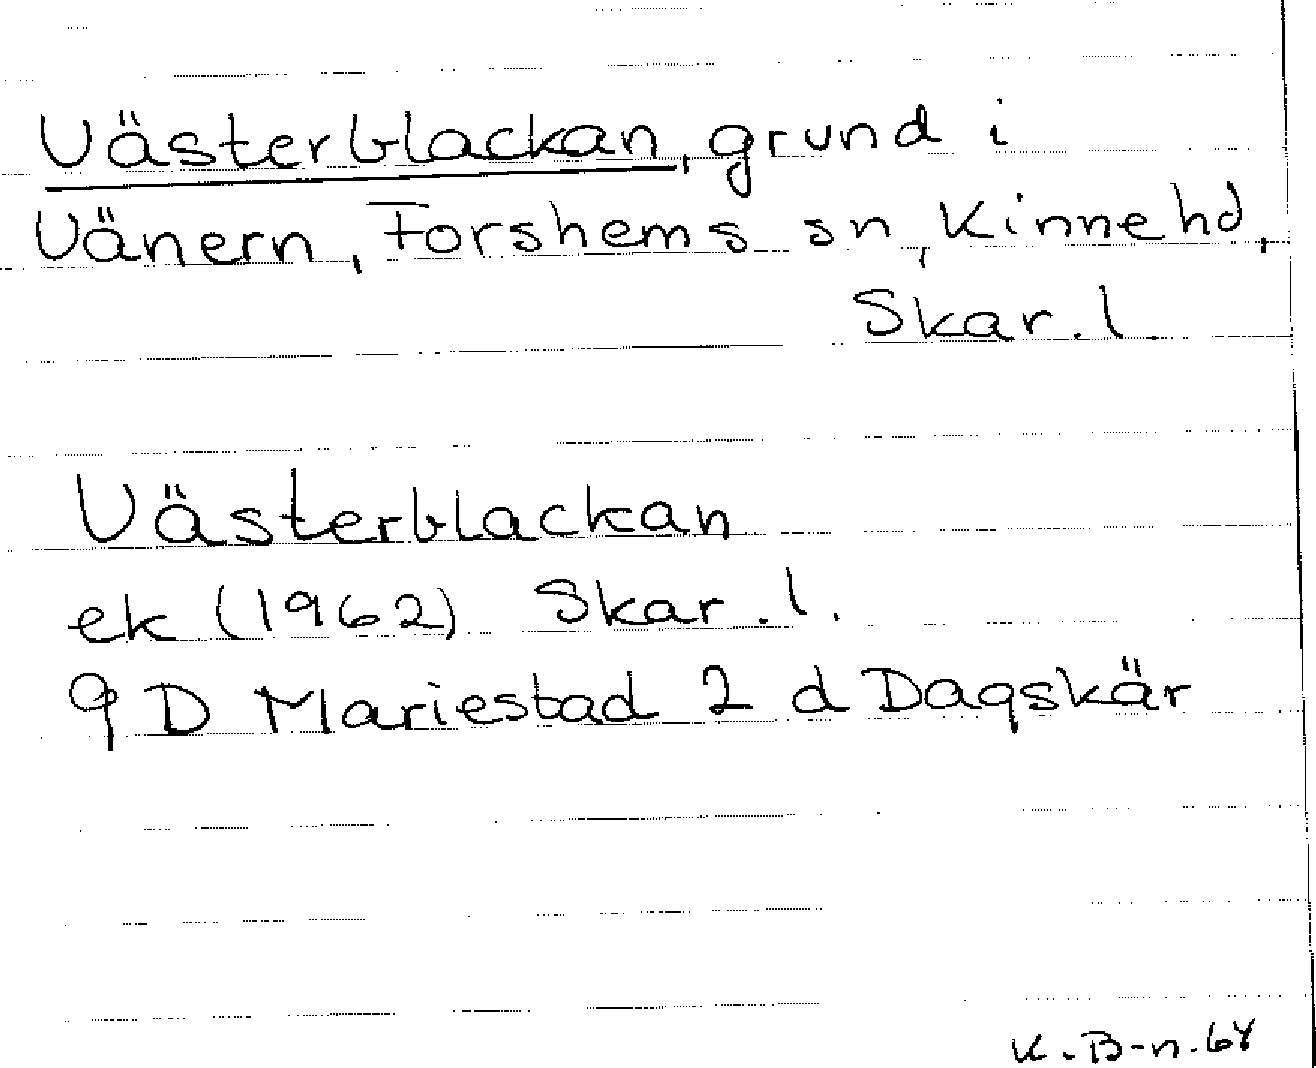 Västerblackan, grund i
Vänern, Forshems sn, Kinnehd,
Skar. l
Västerblackan
ek (1962) Skar. l.
9 D Mariestad 2 d Dagskär
K. B-n. 64